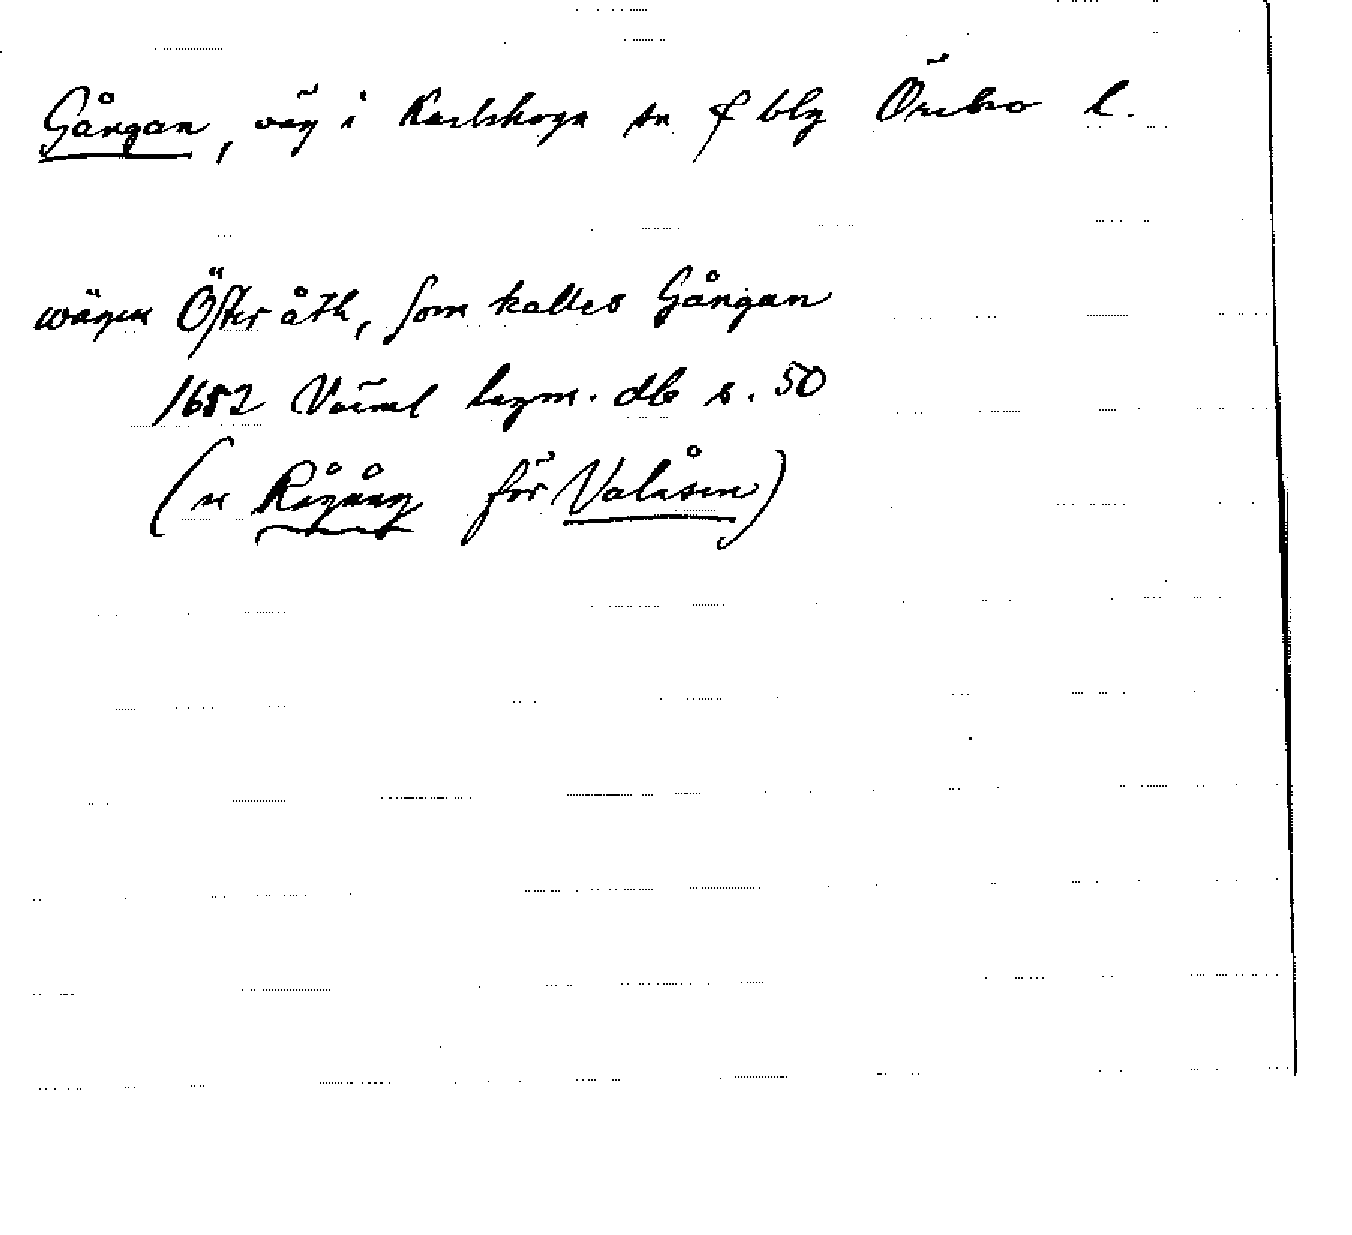 Gångan, väg i Karlskoga sn f blg Örebro l.
wägen Öfter åth, som kalles Gångan
1652 Värml lagm. db s. 50
(se Rågång för Valåsen)